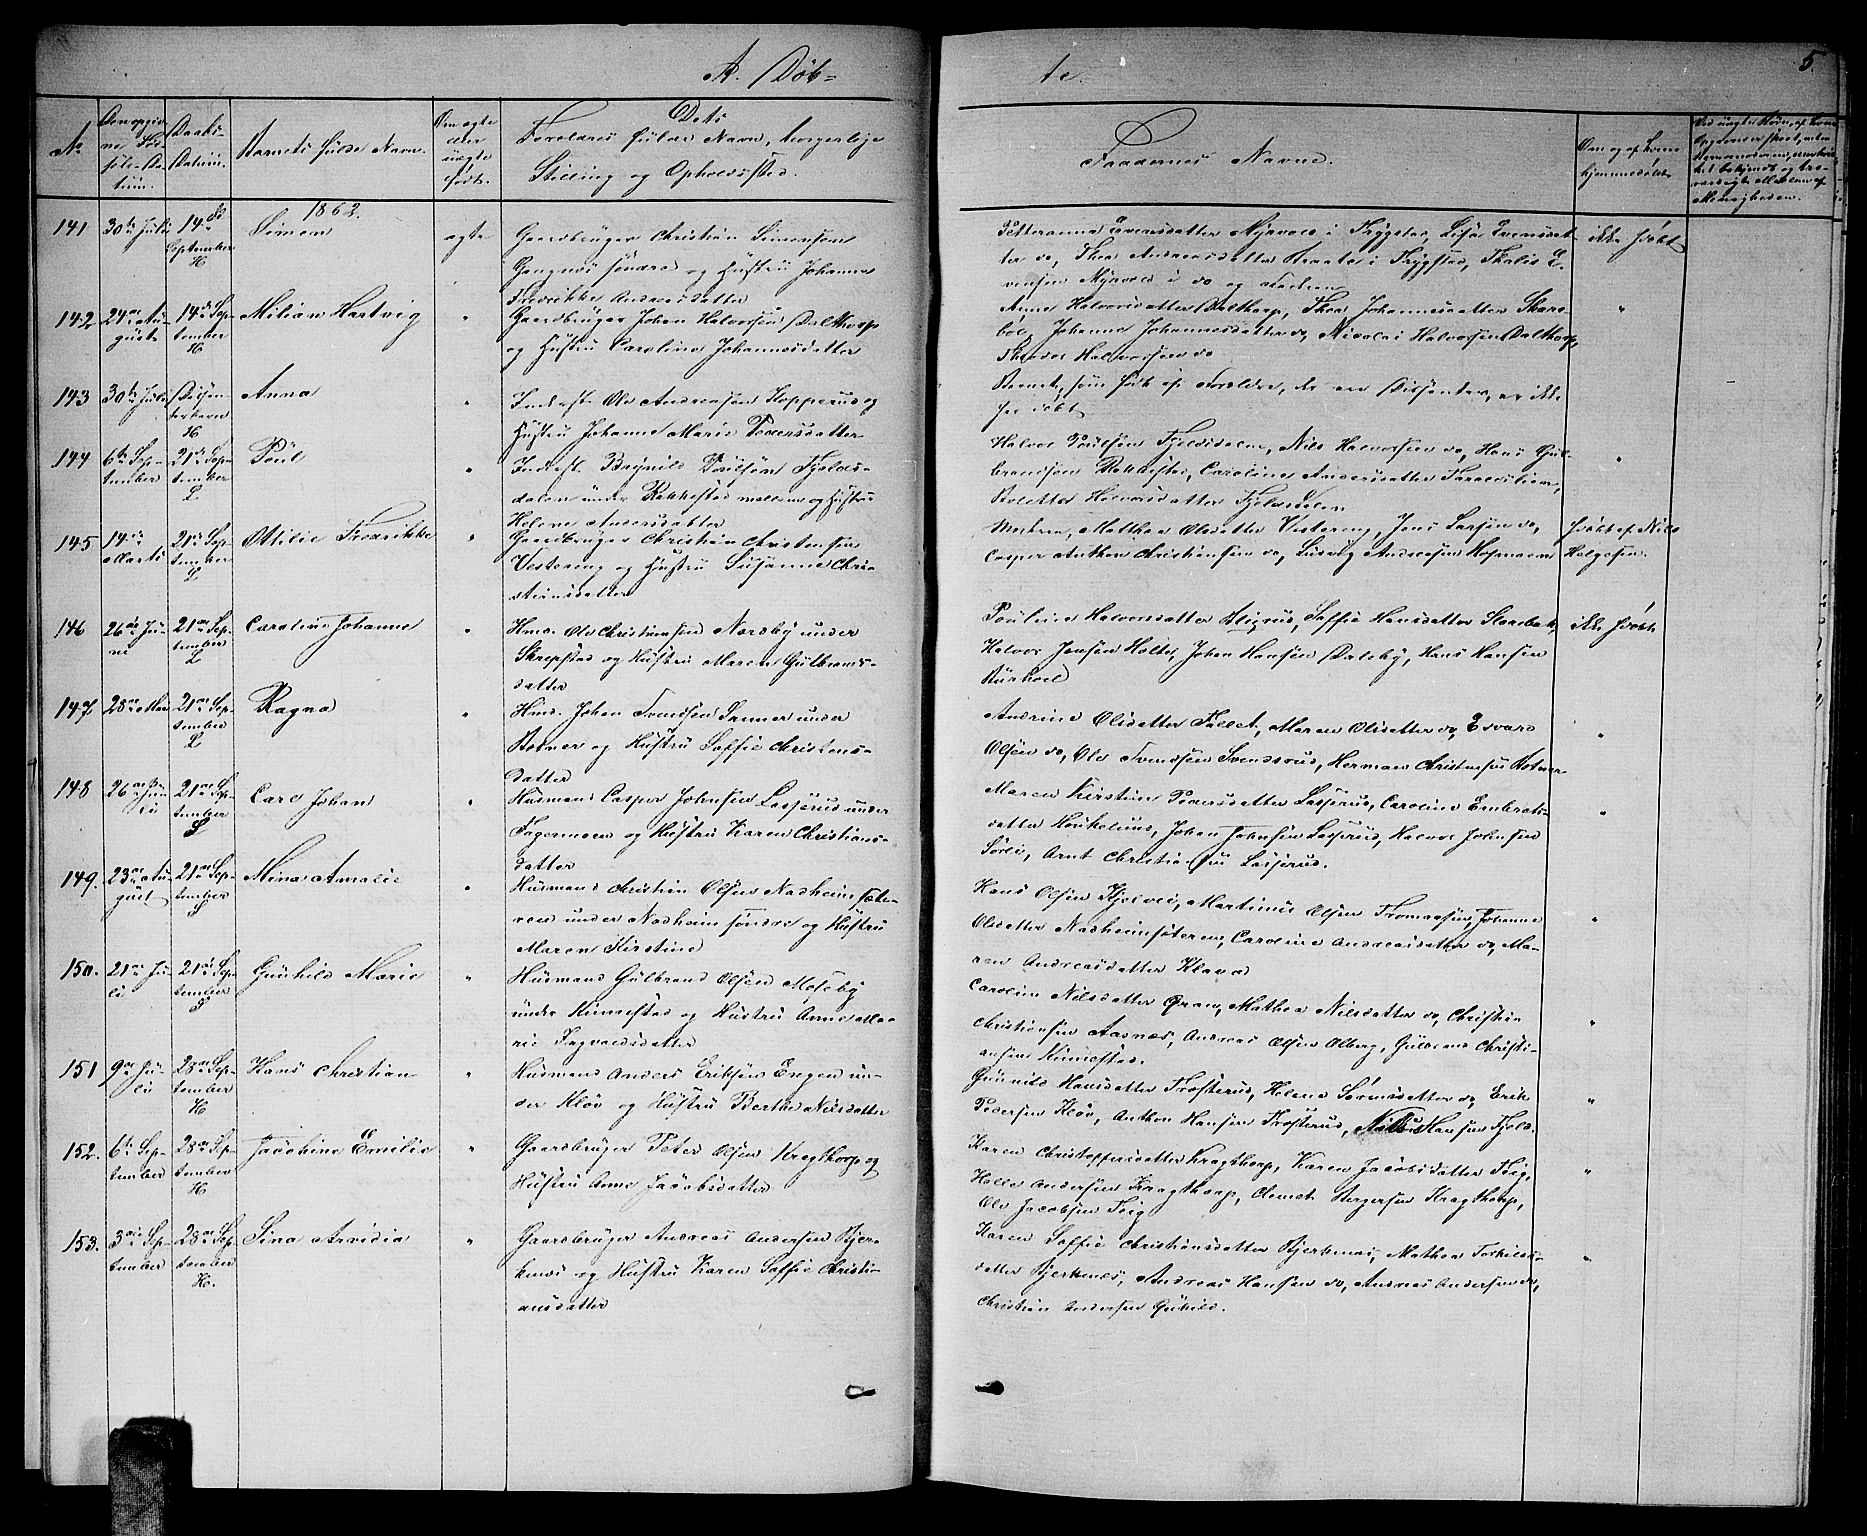 A. Døb=
te.
5.
No
Den opgiv
ne Fød
sels-Da
tum.
Daabs-
Datum.
Barnets fulde Navn.
Om ægte
eller
uægte
født.
Dets
Forældres fulde Navn, borgerlige
Stilling og Opholdssted.
Faddernes Navne.
Om og af hvem
hjemmedøbt
1862.
141
30te Juli
14de
September
H
Simon
ægte
Gaardbruger Christian Simonsen
søndre og Hustru Johanne
Fredrikke Andreasdatter
Petteranna Evensdatter Myrvold i Trygstad, Lisa Evensdat-
ter do, Thea Andreasdatter i Trygstad, E-
vensen Myrvold i do og Faderen
ikke hjdøbt
142
24de Au-
gust
14de Sep-
tember
H
Milian Hartvig
"
Gaardbruger Johan Halvorsen Dalthorp
og Hustru Caroline Johannesdatter
Anne Halvorsdatter Dalthorp, Thea Johannesdatter Skare-
bøl, Johanne Johannesdatter do, Nicolai Halvorsen Dalthorp,
Halvorsen do
"
143
30te Juli
Dissen-
terbarn
H
Anna
"
Inderst Ole Andreasen Kopperud og
Hustru Johanne Marie Pedersdatter
Barnet, som født af Forældre, der ere Dissenter, er ikke
døbt
144
6te Sep-
tember
21de Sep-
tember
L
Poul
"
Inderst Brynild Poulsen Fjelds-
dalen under Rakkestad mellem og Hustru
Helene Andersdatter
Halvor Poulsen Fjeldsdalen, Nils Halvorsen do, Hans Gul-
brandsen Rakkestad, Caroline Andersdatter
Halvorsdatter Fjeldsdalen
"
145
14de
Marts
21de Sep-
tember
L
Ottilie Fredrikke
"
Gaardbruger Christian Christensen
Vestereng og Hustru Susanne Chri-
stiansdatter
Moderen, Mathea Olsdatter Vestereng, Jens Larsen do,
Casper Anthon Christiansen do, Ludvig Andreasen Hofmoen
hjdøbt af Nils
Helgesen.
146
26de Ju-
ni
21de Sep-
tember
L
Caroline Johanne
"
Hmd. Ole Christiansen Nordby under
Skrepstad og Hustru Maren Gulbrands-
datter
Pouline Halvorsdatter Soffie Hansdatter
Halvor Jensen Holte, Johan Hansen Dalsby, Hans Hansen
ikke hjdøbt
147
28de Mai
21de Sep-
tember
L
Ragna
"
Hmd. Johan Svendsen under
Botner og Hustru Soffie Christens-
datter
Andrine Olsdatter Fallet, Maren Olsdatter do, Edvard
Olsen do, Ole Svendsen Svendsrud, Herman Christensen Botner
"
148
26de Ju-
li
21de Sep-
tember
S
Carl Johan
"
Husmand Casper Johnsen Lasserud under
Fagermoen og Hustru Karen Christians-
datter
Maren Kirstine Pedersdatter Lasserud, Caroline Embrets-
datter Johan Johnsen Lasserud, Halvor Johnsen
Sørli, Arnt Christiansen Lasserud.
"
149.
23de Au-
gust
21de Sep-
tember
S
Mina Amalie
"
Husmand Christian Olsen Nadheim sæte-
ren under Nadheim søndre og Hustru
Maren Kirstine
Hans Olsen Kjølvei, Martinus Olsen Tromaasen, Johanne
Olsdatter Nadheimsæteren, Caroline Andreasdatter do, Ma-
ren Andreasdatter Klavad
"
150.
21de Ju-
li
21de Sep-
tember
S
Gunhild Marie
"
Husmand Gulbrand Olsen Moseby
under Kinnestad og Hustru Anne Ma-
rie Ingvoldsdatter
Caroline Nilsdatter Gran, Mathea Nilsdatter do, Christian
Christiansen Aasnæs, Andreas Olsen Olberg, Gulbrand Christi-
ansen Kinnestad.
"
151
9de Ju-
li
28de Sep-
tember
H
Hans Christian
"
Husmand Anders Eriksen Engen un-
der Kløv og Hustru Berthe Nilsdatter
Gunild Hansdatter Trosterud, Helene Sørensdatter do, Erik
Pedersen Kløv, Anthon Hansen Trosterud, Nils Hansen Fjeld.
"
152.
6te Sep-
tember
28de Sep-
tember
H
Jacobine Emilie
"
Gaardbruger Peter Olsen Kragthorp og
Hustru Anne Jacobsdatter
Karen Christoffersdatter Kragthorp, Karen Jacobsdatter Teig,
Helle Andersen Kragthorp, Clemet Bergersen Kragthorp,
Ole Jacobsen Teig
"
153.
3die Sep-
tember
28de Sep-
tember
H.
Sina Arvidia
"
Gaardbruger Andreas Andersen Bjer-
kenæs og Hustru Karen Soffie Christi-
ansdatter
Karen Soffie Christiansdatter Bjerkenæs, Mathea Torkilds-
datter Bjerkenæs, Andreas Hansen do, Andreas Andersen do,
Christian Andersen Gukild.
"